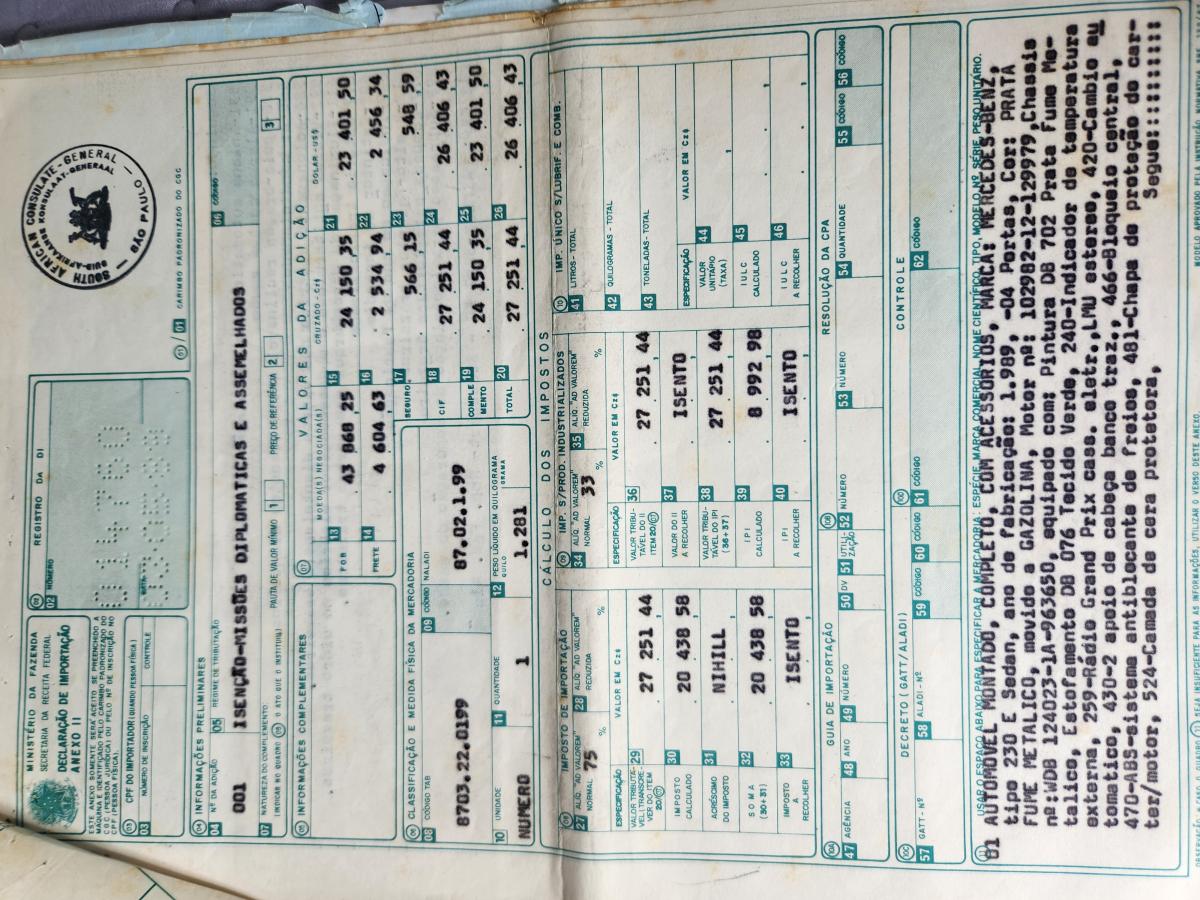 MINISTÉRIO DA FAZENDA
SECRETARIA DA RECEITA FEDERAL
DECLARAÇÃO DE IMPORTAÇÃO
ANEXO II
REGISTRO DA DI
02 NÚMERO
SOUTH AFRICAN CONSULATE-GENERAL
SUID-AFRIKAANSE KONSULAAT-GENERAAL
SÃO PAULO
01 CARIMBO PADRONIZADO DO CGC
ESTE ANEXO SOMENTE SERÁ ACEITO SE PREENCHIDO A
MÁQUINA E IDENTIFICADO PELO CARIMBO PADRONIZADO DO
CGC (PESSOA JURÍDICA) OU PELO Nº DE INSCRIÇÃO NO
CPF (PESSOA FÍSICA).
CPF DO IMPORTADOR (QUANDO PESSOA FÍSICA)
03 NÚMERO DE INSCRIÇÃO CONTROLE
INFORMAÇÕES PRELIMINARES
04 Nº DA ADIÇÃO 05 REGIME DE TRIBUTAÇÃO 06 CÓDIGO
001 ISENÇÃO-MISSÕES DIPLOMATICAS E ASSEMELHADOS
07 NATUREZA DO COMPLEMENTO
(INDICAR NO QUADRO O ATO QUE O INSTITUIU) PAUTA DE VALOR MÍNIMO 1 PREÇO DE REFERÊNCIA 2 3
INFORMAÇÕES COMPLEMENTARES
VALORES DA ADIÇÃO
MOEDA(S) NEGOCIADA(S) CRUZADO - CZ$ DOLAR - US$
FOB 13 43 868 25 15 24 150 35 21 23 401 50
FRETE 14 4 604 63 16 2 534 94 22 2 456 34
SEGURO 17 566 15 23 548 59
CIF 18 27 251 44 24 26 406 43
COMPLEMENTO 19 24 150 35 25 23 401 50
TOTAL 20 27 251 44 26 26 406 43
CLASSIFICAÇÃO E MEDIDA FÍSICA DA MERCADORIA
08 CÓDIGO TAB 09 CÓDIGO NALADI
8703.22.0199 87.02.1.99
10 UNIDADE 11 QUANTIDADE 12 PESO LÍQUIDO EM QUILOGRAMA
QUILO GRAMA
NUMERO 1 1.281
CÁLCULO DOS IMPOSTOS
IMPOSTO DE IMPORTAÇÃO
27 ALIQ. "AD VALOREM" NORMAL 75 % 28 ALIQ. "AD VALOREM" REDUZIDA %
ESPECIFICAÇÃO VALOR EM CZ$
VALOR TRIBUTÁVEL TRANSCREVER DO ITEM 20 29 27 251 44
IMPOSTO CALCULADO 30 20 438 58
ACRÉSCIMO DO IMPOSTO 31 NIHILL
SOMA (30+31) 32 20 438 58
IMPOSTO A RECOLHER 33 ISENTO
IMP. S/PROD. INDUSTRIALIZADOS
34 ALIQ. "AD VALOREM" NORMAL 33 % 35 ALIQ. "AD VALOREM" REDUZIDA %
ESPECIFICAÇÃO VALOR EM CZ$
VALOR TRIBUTÁVEL DO II ITEM 20 36 27 251 44
II A RECOLHER 37 ISENTO
VALOR TRIBUTÁVEL DO IPI (36+37) 38 27 251 44
IPI CALCULADO 39 8 992 98
IPI A RECOLHER 40 ISENTO
IMP. ÚNICO S/LUBRIF. E COMB.
41 LITROS - TOTAL
42 QUILOGRAMAS - TOTAL
43 TONELADAS - TOTAL
ESPECIFICAÇÃO VALOR EM CZ$
VALOR UNITÁRIO (TAXA) 44
IULC CALCULADO 45
IULC A RECOLHER 46
GUIA DE IMPORTAÇÃO RESOLUÇÃO DA CPA
47 AGÊNCIA 48 ANO 49 NÚMERO 50 DV 51 UTILIZAÇÃO 52 NÚMERO 53 NÚMERO 54 QUANTIDADE 55 CÓDIGO 56 CÓDIGO
DECRETO (GATT/ALADI) CONTROLE
57 GATT - Nº 58 ALADI - Nº 59 CÓDIGO 60 CÓDIGO 61 CÓDIGO 62 CÓDIGO
USAR O ESPAÇO ABAIXO PARA ESPECIFICAR A MERCADORIA: ESPÉCIE, MARCA COMERCIAL, NOME CIENTÍFICO, TIPO, MODELO, Nº SÉRIE, PESO UNITÁRIO.
01 AUTOMÓVEL MONTADO, COMPLETO COM ACESSÓRIOS, MARCA: MERCEDES-BENZ,
tipo 230 E Sedan, ano de fabricação: 1.989, -04 Portas, Cor: PRATA
FUME METALICO, movido a GAZOLINA, Motor nº: 102982-12-129979, Chassis
nº:WDB 124023-1A-963650, equipado com: Pintura DB 702 Prata Fume Me-
talico, Estofamento DB 076 Tecido Verde, 240-Indicador de temperatura
externa, 259-Rádio Grand Prix cass. eletr.,LMU stereo, 420-Cambio au
tomatico, 430-2 apoio de cabeça banco traz., 466-Bloqueio central,
470-ABS-sistema antiblocante de freios, 481-Chapa de proteção de car-
ter/motor, 524-Camada de cera protetora, Segue::::::::::